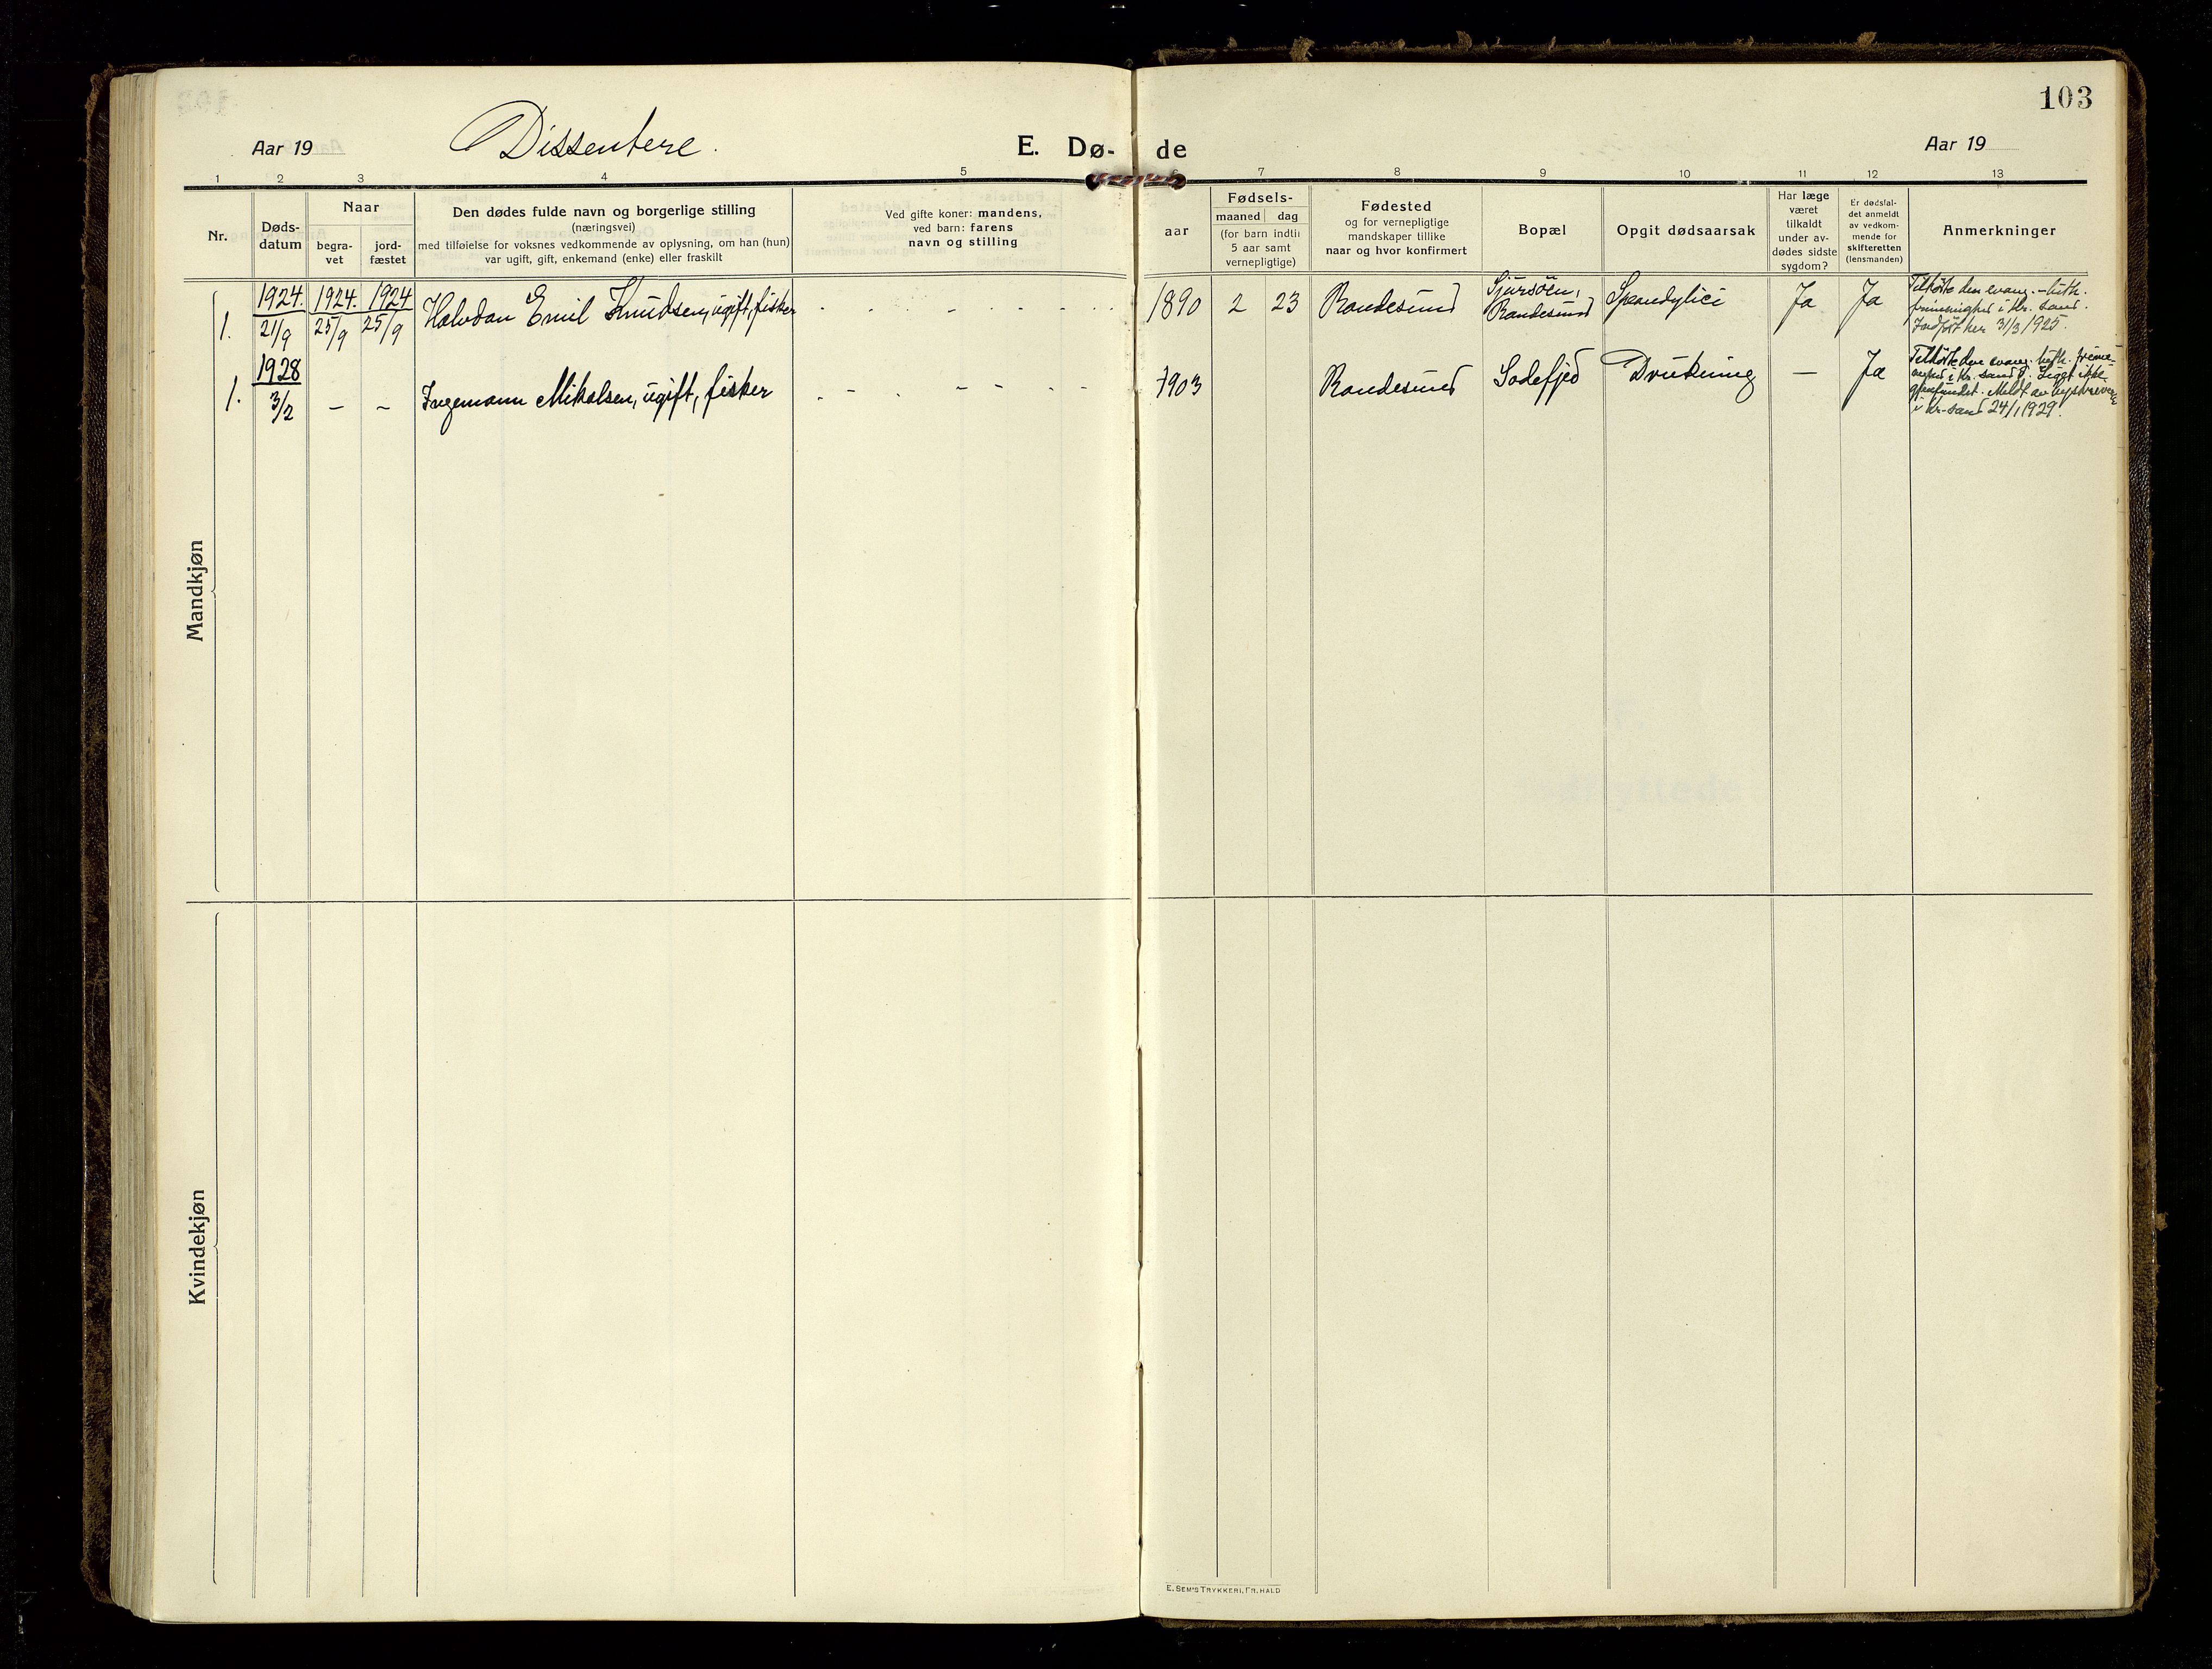 103
Aar 19
Dissentere.
E. Dø- de
Aar 19
1 2 3 4 5 6 7 8 9 10 11 12 13
Nr.
Døds-
datum
Naar
begra-
vet
jord-
fæstet
Den dødes fulde navn og borgerlige stilling
(næringsvei)
med tilføielse for voksnes vedkommende av oplysning, om han (hun)
var ugift, gift, enkemand (enke) eller fraskilt
Ved gifte koner: mandens,
ved barn: farens
navn og stilling
aar
Fødsels-
maaned dag
(for barn indtil
5 aar samt
vernepligtige)
Fødested
og for vernepligtige
mandskaper tillike
naar og hvor konfirmert
Bopæl
Opgit dødsaarsak
Har læge
været
tilkaldt
under av-
dødes sidste
sygdom?
Er dødsfal-
det anmeldt
av vedkom-
mende for
skifteretten
(lensmanden)
Anmerkninger
Mandkjøn
1.
1924.
21/9
1924.
25/9
1924
25/9
Halvdan Emil Knudsen, ugift, fisker
1890
2
23
Randesund
Gjursøen,
Randesund
Ja
Ja
Tilhørte den evang.-luth.
frimenighed i Kr. sand.
Indført her 31/3 1925.
1.
1928
3/2
–
–
Ingemann Mikalsen, ugift, fisker
1903
Randesund
Sodefjed
Drukning
–
Ja
Tilhørte den evang. luth. frime-
nighed i Kr. sand S. Liget ikke
gjenfundet. Meldt av byskriveren
i Kr-sand 24/1 1929.
Kvindekjøn
E. Sem's Trykkeri, Fr.hald